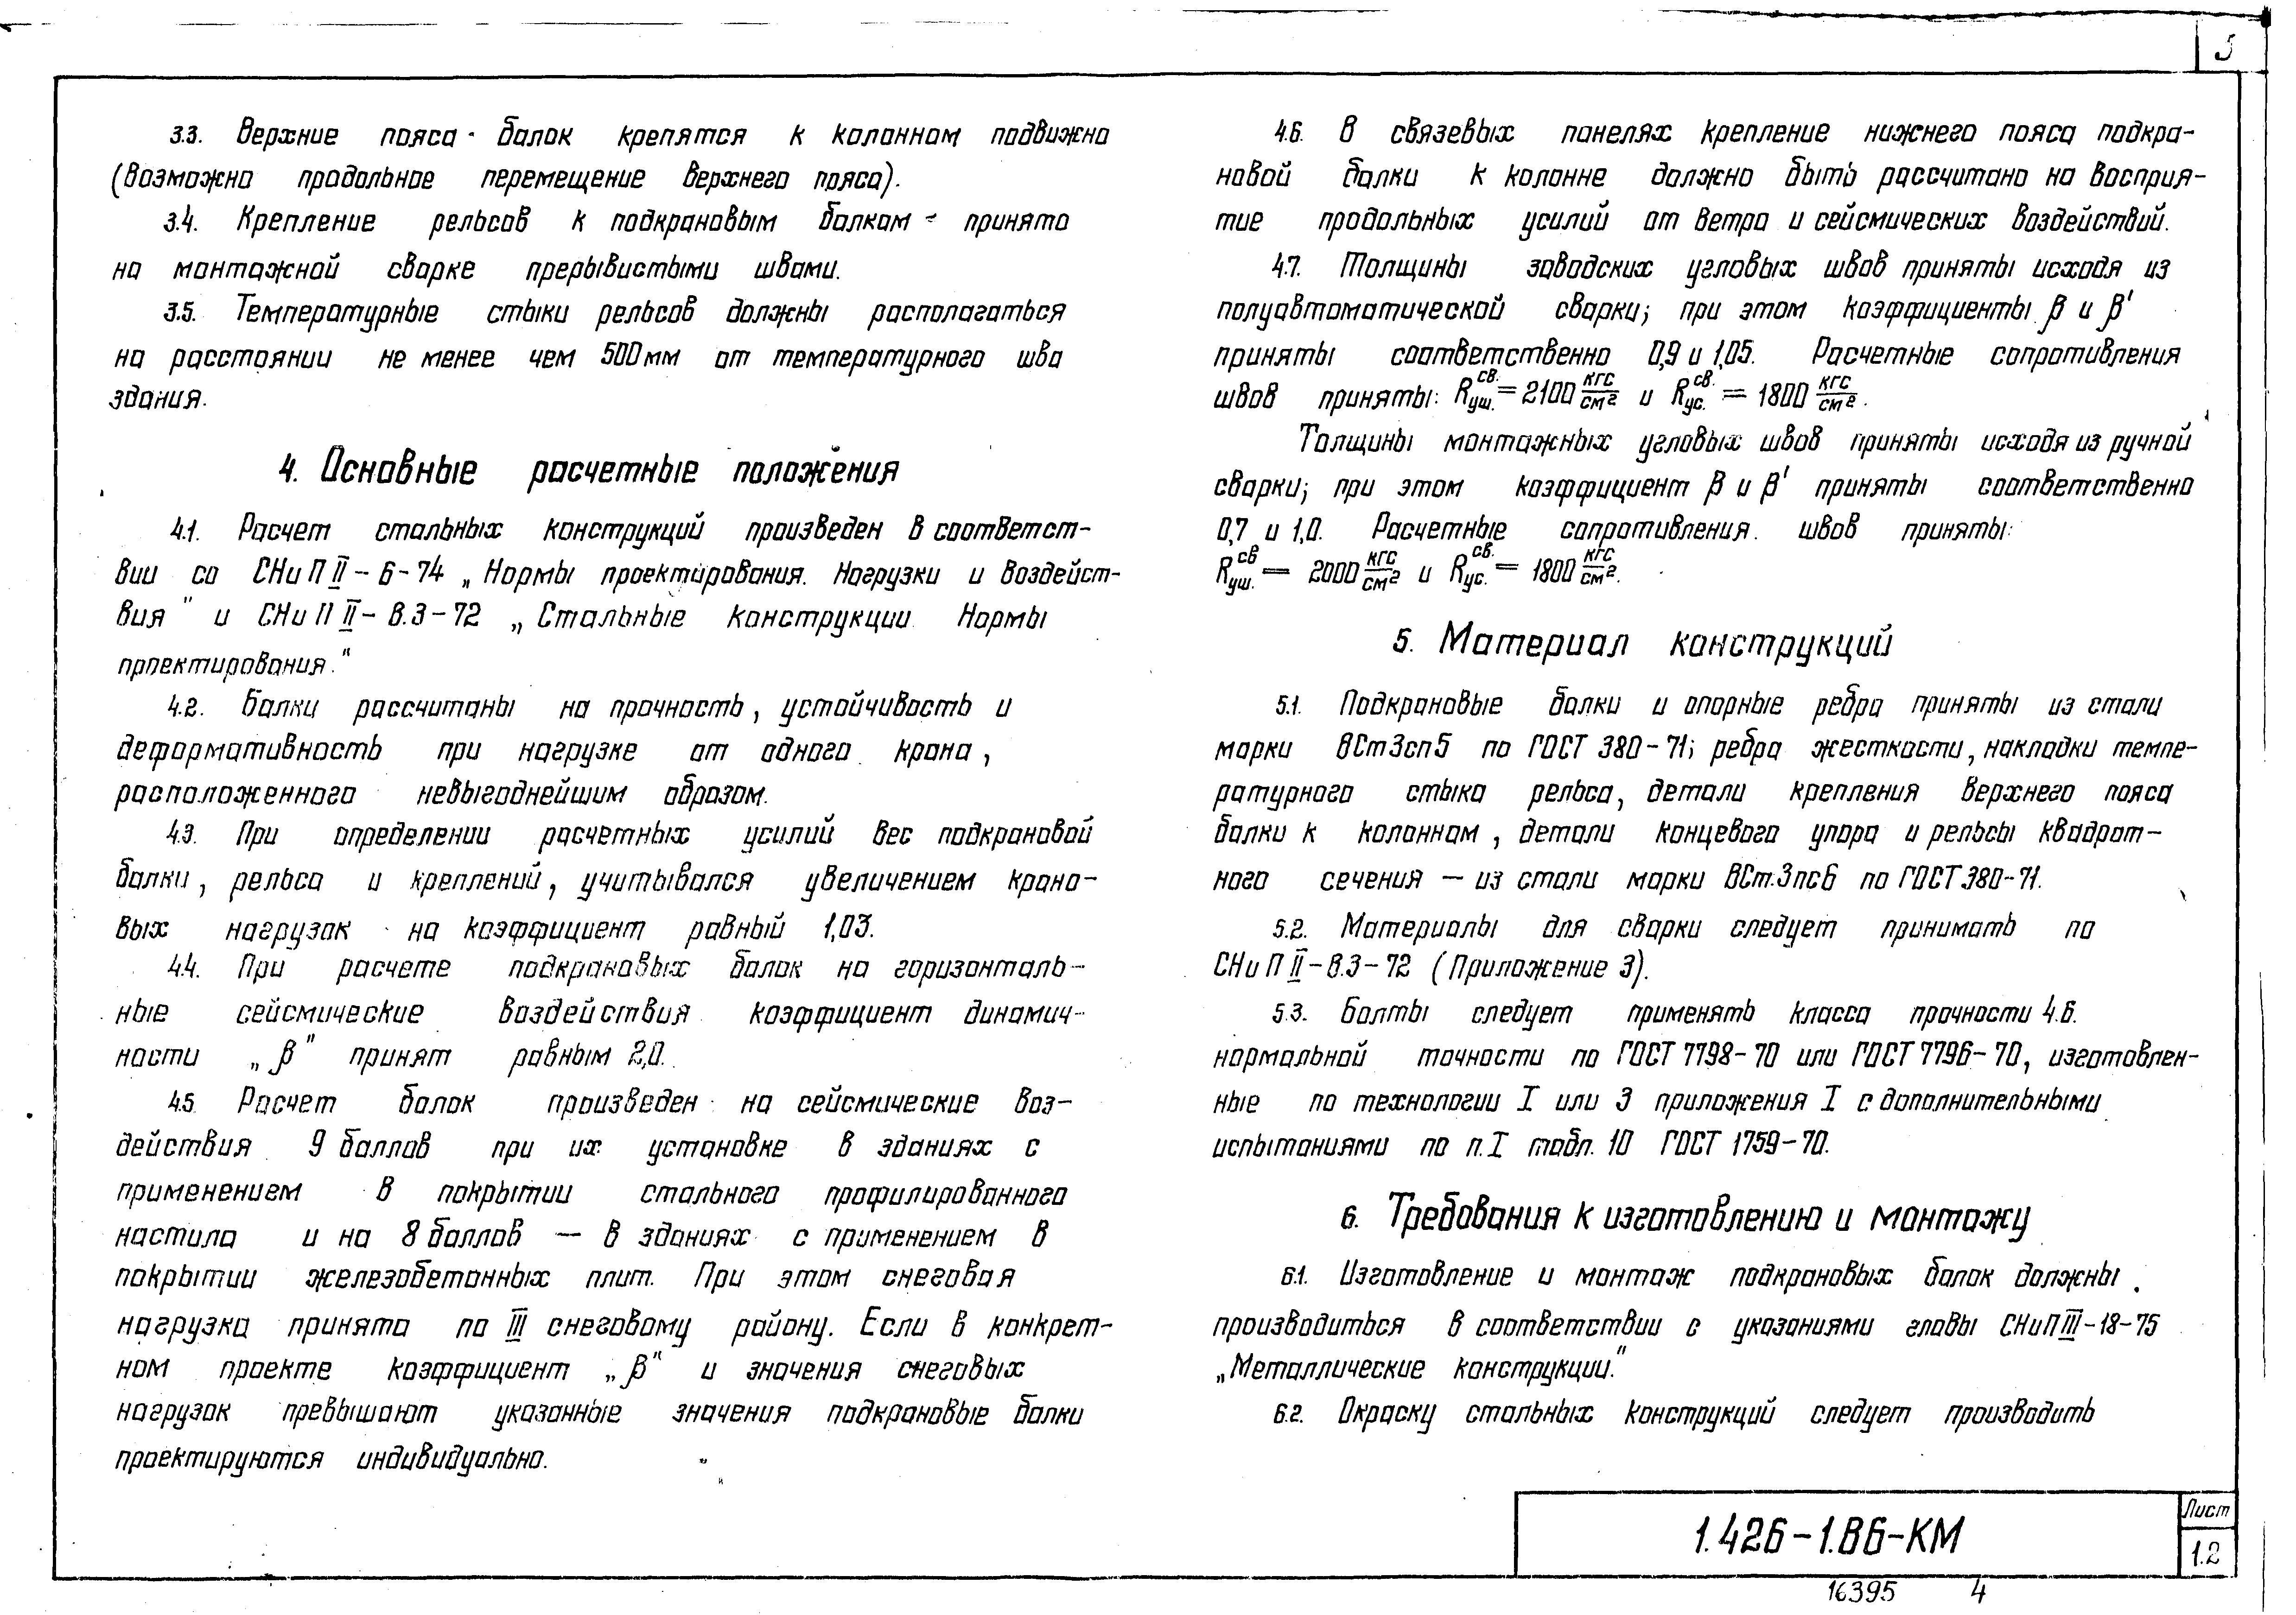 3
3.3. Верхние пояса балок крепятся к колоннам подвижно
(возможно продольное перемещение верхнего пояса).
3.4. Крепление рельсов к подкрановым балкам - принято
на монтажной сварке прерывистыми швами.
3.5. Температурные стыки рельсов должны располагаться
на расстоянии не менее чем 500мм от температурного шва
здания.
4. Основные расчетные положения
4.1. Расчет стальных конструкций произведен в соответст-
вии со СНиП II-6-74 „Нормы проектирования. Нагрузки и воздейст-
вия" и СНиП II-В.3-72 „Стальные конструкции Нормы
проектирования."
4.2. Балки рассчитаны на прочность, устойчивость и
деформативность при нагрузке от одного крана,
расположенного невыгоднейшим образом.
4.3. При определении расчетных усилий вес подкрановой
балки, рельса и креплений, учитывался увеличением крано-
вых нагрузок на коэффициент равный 1,03.
4.4. При расчете подкрановых балок на горизонталь-
ные сейсмические воздействия коэффициент динамич-
ности „β" принят равным 2,0.
4.5 Расчет балок произведен на сейсмические воз-
действия 9 баллов при их установке в зданиях с
применением в покрытии стального профилированного
настила и на 8 баллов — в зданиях с применением в
покрытии железобетонных плит. При этом снеговая
нагрузка принята по III снеговому району. Если в конкрет-
ном проекте коэффициент „β" и значения снеговых
нагрузок превышают указанные значения подкрановые балки
проектируются индивидуально.
4.6. В связевых панелях крепление нижнего пояса подкра-
новой балки к колонне должно быть рассчитано на восприя-
тие продольных усилий от ветра и сейсмических воздействий.
4.7. Толщины заводских угловых швов приняты исходя из
полуавтоматической сварки; при этом коэффициенты β и β'
приняты соответственно 0,9 и 1,05. Расчетные сопротивления
швов приняты: Rуш.св. = 2100 кгс/см² и Rус.св. = 1800 кгс/см².
Толщины монтажных угловых швов приняты исходя из ручной
сварки; при этом коэффициент β и β' приняты соответственно
0,7 и 1,0. Расчетные сопротивления. швов приняты:
Rуш.св = 2000 кгс/см² и Rус.св. = 1800 кгс/см².
5. Материал конструкций
5.1. Подкрановые балки и опорные ребра приняты из стали
марки ВСт3сп5 по ГОСТ 380-71; ребра жесткости, накладки темпе-
ратурного стыка рельса, детали крепления верхнего пояса
балки к колоннам, детали концевого упора и рельсы квадрат-
ного сечения — из стали марки ВСт.3пс6 по ГОСТ 380-71.
5.2. Материалы для сварки следует принимать по
СНиП II-В.3-72 (Приложение 3).
5.3. Болты следует применять класса прочности 4.6.
нормальной точности по ГОСТ 7798-70 или ГОСТ 7796-70, изготовлен-
ные по технологии I или 3 приложения I с дополнительными
испытаниями по п.I табл. 10 ГОСТ 1759-70.
6. Требования к изготовлению и монтажу
6.1. Изготовление и монтаж подкрановых балок должны
производиться в соответствии с указаниями главы СНиП III-18-75
„Металлические конструкции."
6.2. Окраску стальных конструкций следует производить
1.426-1.В6-КМ
Лист
1.2
16395 4